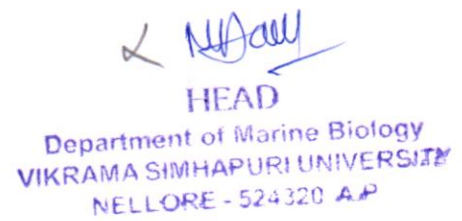 HEAD
Department of Marine Biology
VIKRAMA SIMHAPURI UNIVERSITY
NELLORE - 524320 A.P